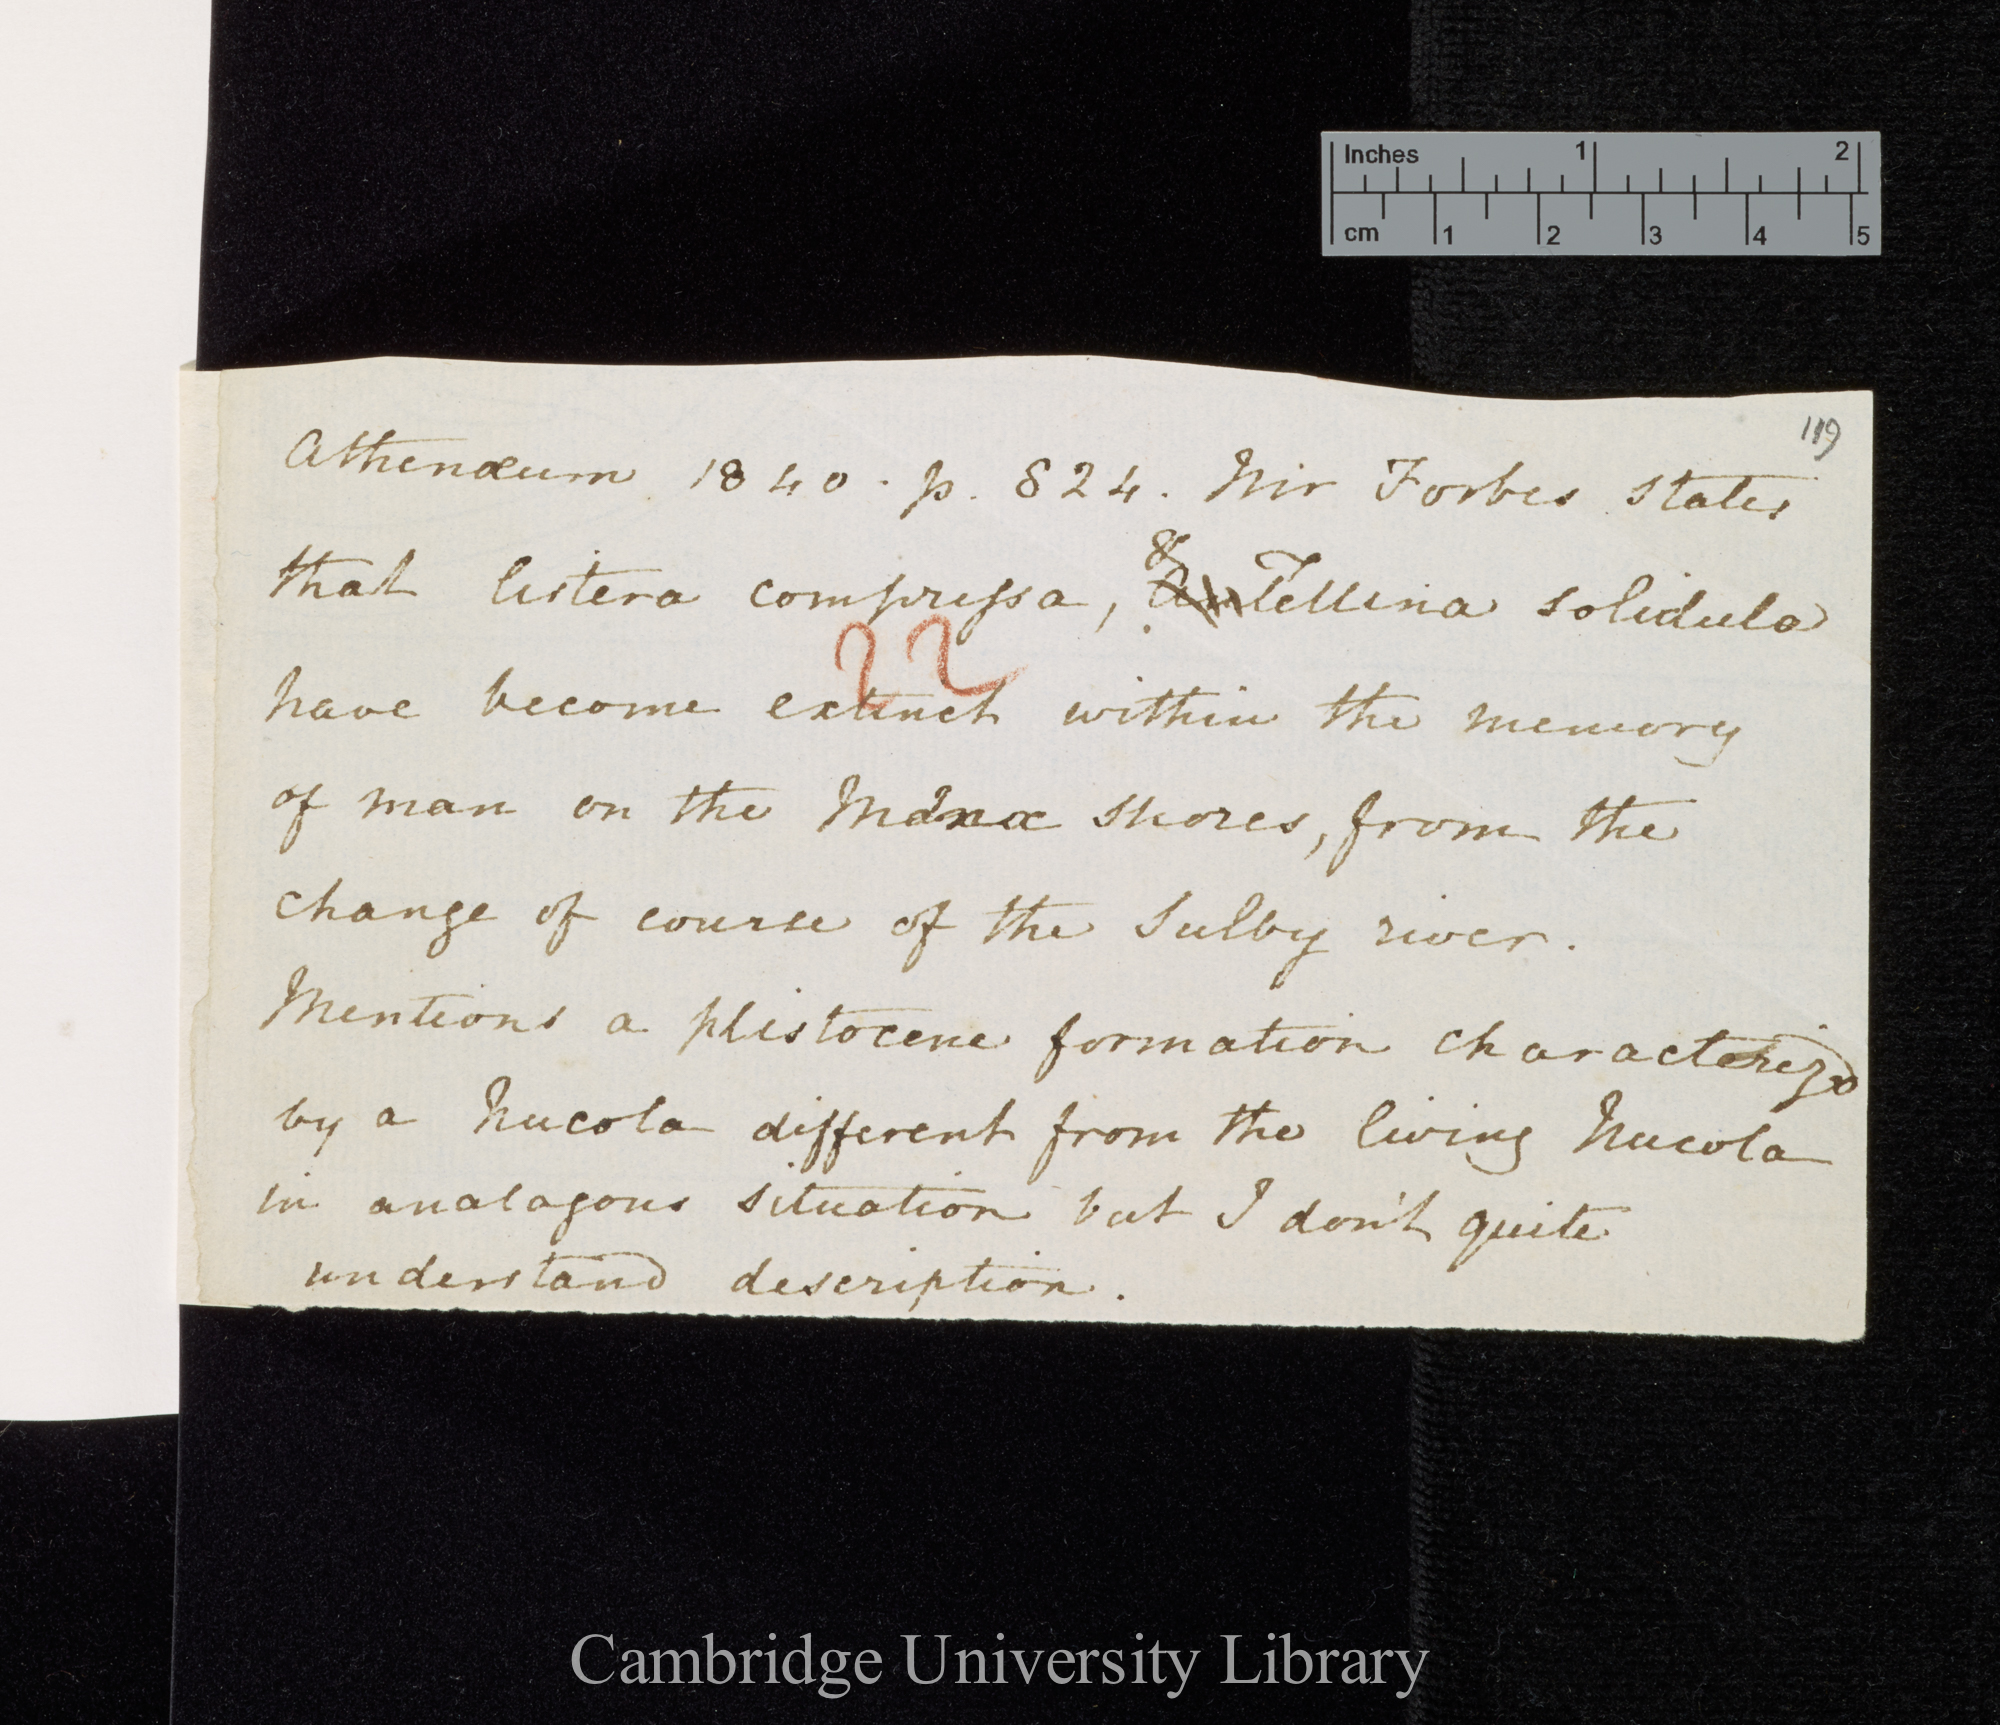 Inches 1 2
cm 1 2 3 4 5
119
Athenæum 1840. p. 824. Mr Forbes states
that listera compressa, & Tellina solidula
22
have become extinct within the memory
of man on the Manx shores, from the
change of course of the Sulby river.
Mentions a plistocene formation characterized
by a Nucola different from the living Nucola
in analagous situation but I don't quite
understand description.
Cambridge University Library